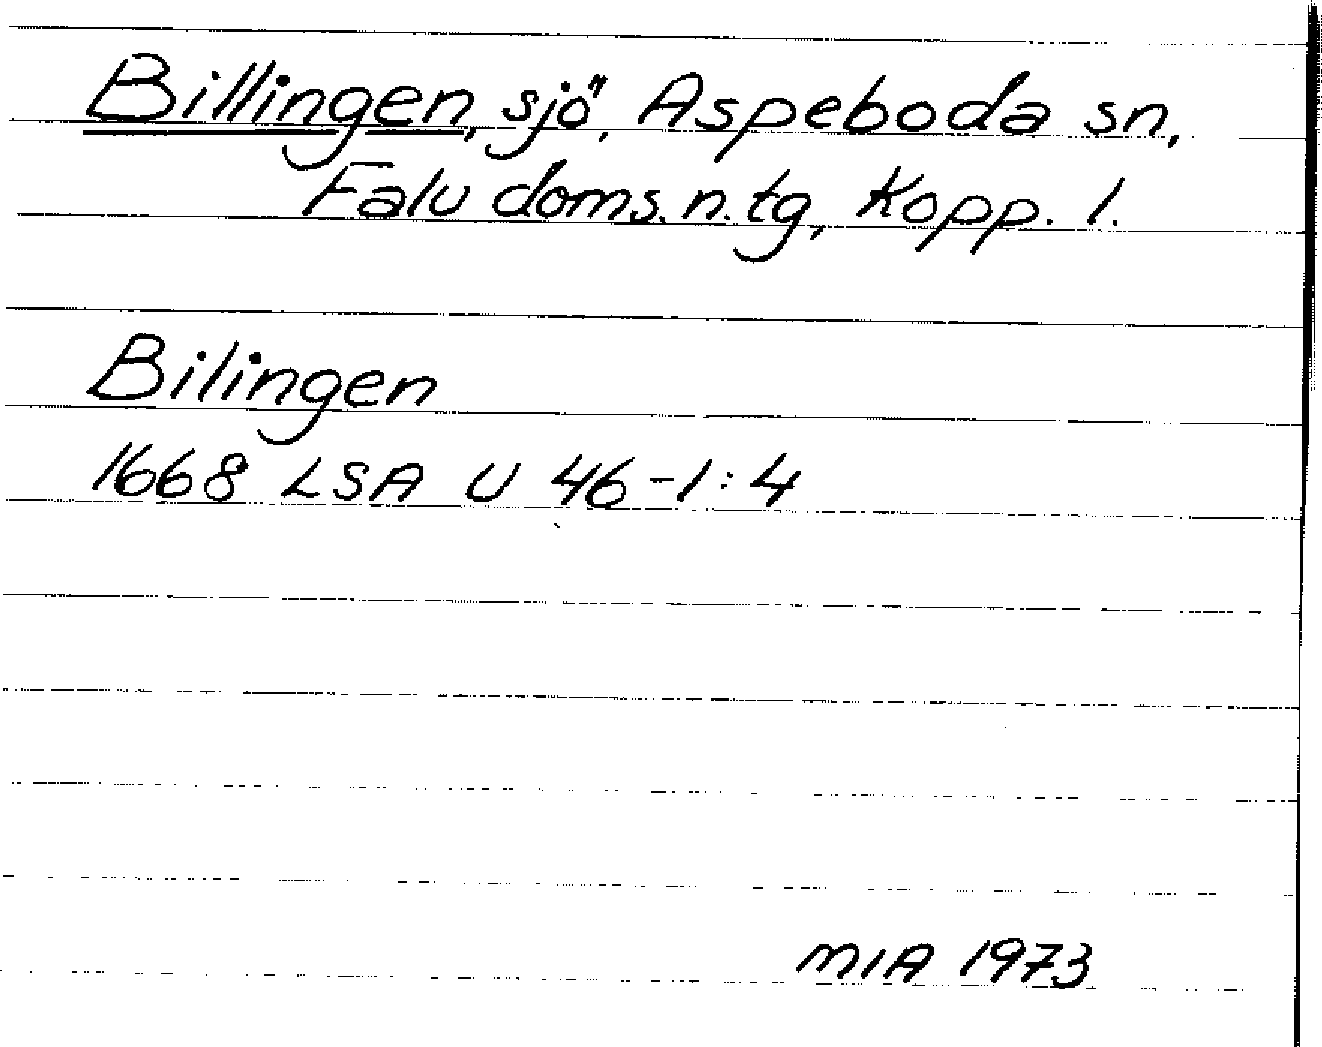 Billingen, sjö, Aspeboda sn,
Falu doms. n. tg, Kopp. l.
Bilingen
1668 LSA U 46-1:4
MIA 1973